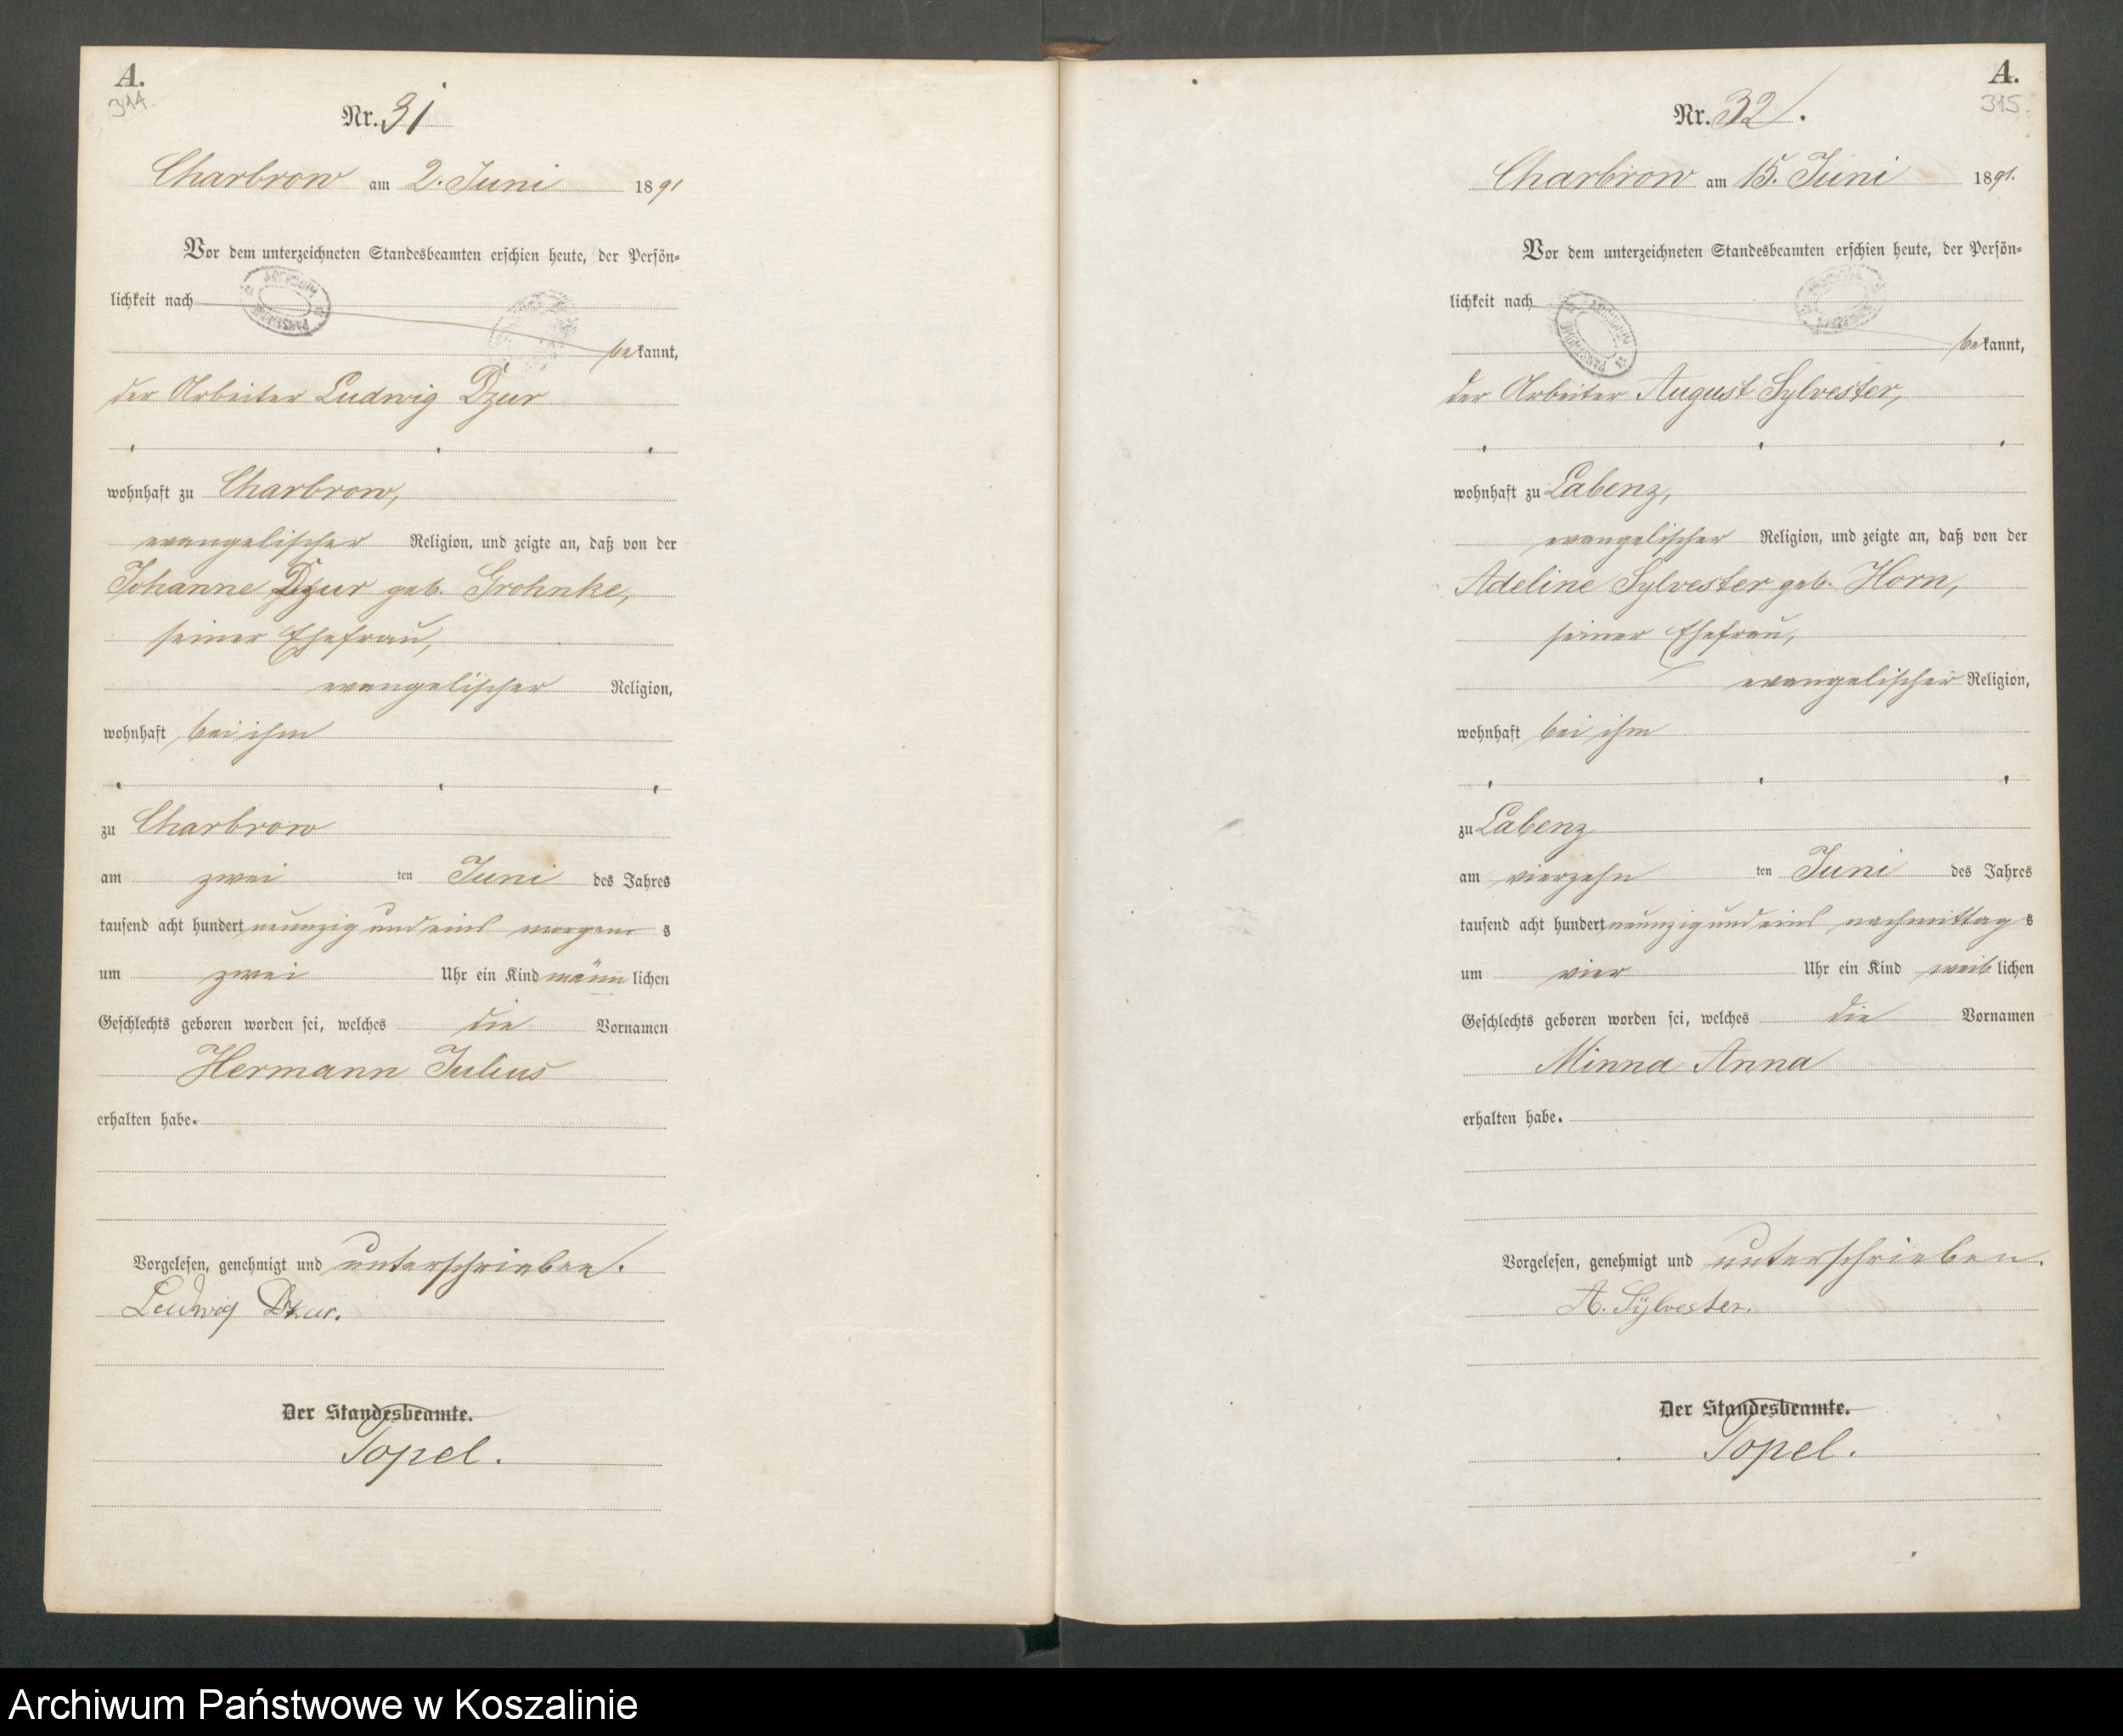 A.
314.
Nr. 31
Charbrow am 2. Juni 1891
Vor dem unterzeichneten Standesbeamten erschien heute, der Persön-
lichkeit nach
bekannt,
der Arbeiter Ludwig Dzur
wohnhaft zu Charbrow,
evangelischer Religion, und zeigte an, daß von der
Johanne Dzur geb. Grohnke,
seiner Ehefrau,
evangelischer Religion,
wohnhaft bei ihm
zu Charbrow
am zwei ten Juni des Jahres
tausend acht hundert neunzig und eins morgens
um zwei Uhr ein Kind männlichen
Geschlechts geboren worden sei, welches die Vornamen
Hermann Julius
erhalten habe.
Vorgelesen, genehmigt und unterschrieben.
Ludwig Dzur.
Der Standesbeamte.
Topel.
A.
315.
Nr. 32.
Charbrow am 15. Juni 1891.
Vor dem unterzeichneten Standesbeamten erschien heute, der Persön-
lichkeit nach
bekannt,
der Arbeiter August Sylvester,
wohnhaft zu Labenz,
evangelischer Religion, und zeigte an, daß von der
Adeline Sylvester geb. Horn,
seiner Ehefrau,
evangelischer Religion,
wohnhaft bei ihm
zu Labenz
am vierzehn ten Juni des Jahres
tausend acht hundert neunzig und eins nachmittags
um vier Uhr ein Kind weiblichen
Geschlechts geboren worden sei, welches die Vornamen
Minna Anna
erhalten habe.
Vorgelesen, genehmigt und unterschrieben.
A. Sÿlvester.
Der Standesbeamte.
Topel.
Archiwum Państwowe w Koszalinie